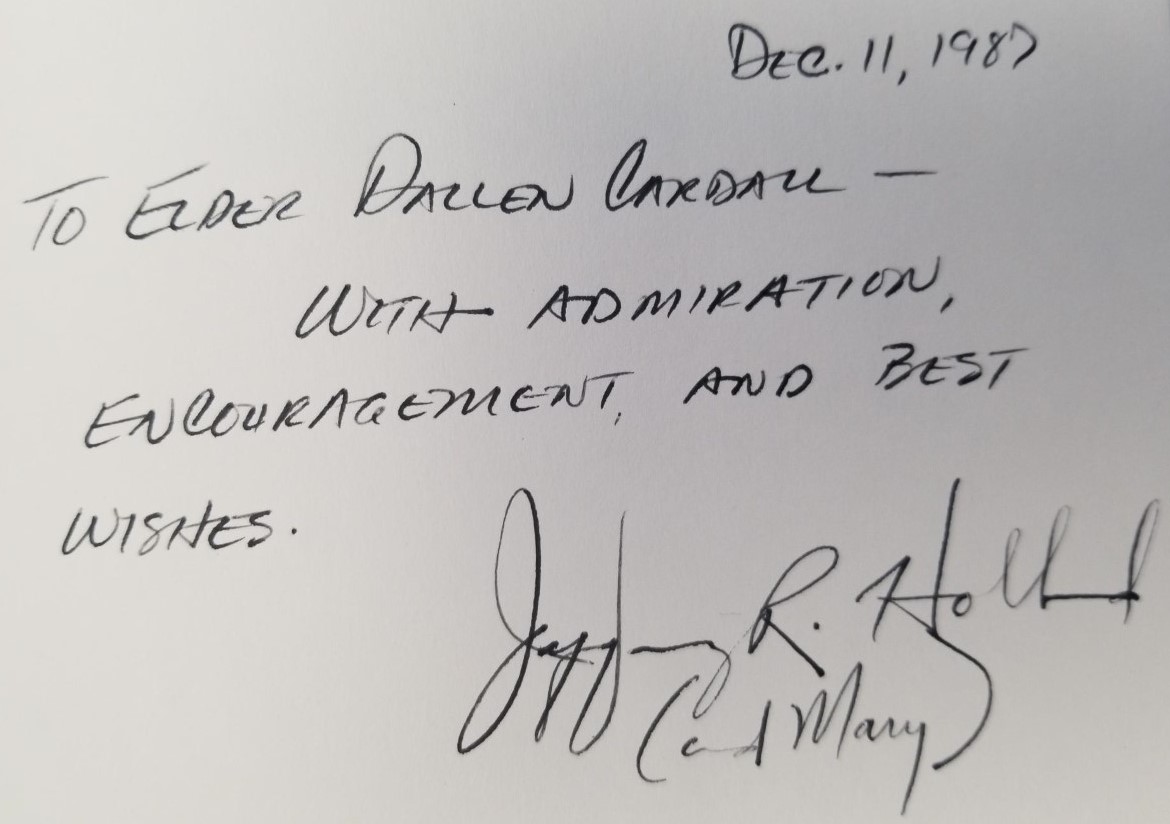 DEC. 11, 1987
TO ELDER DALLEN CARDALL —
WITH ADMIRATION,
ENCOURAGEMENT, AND BEST
WISHES.
Jeffrey R. Holland
(and Mary)